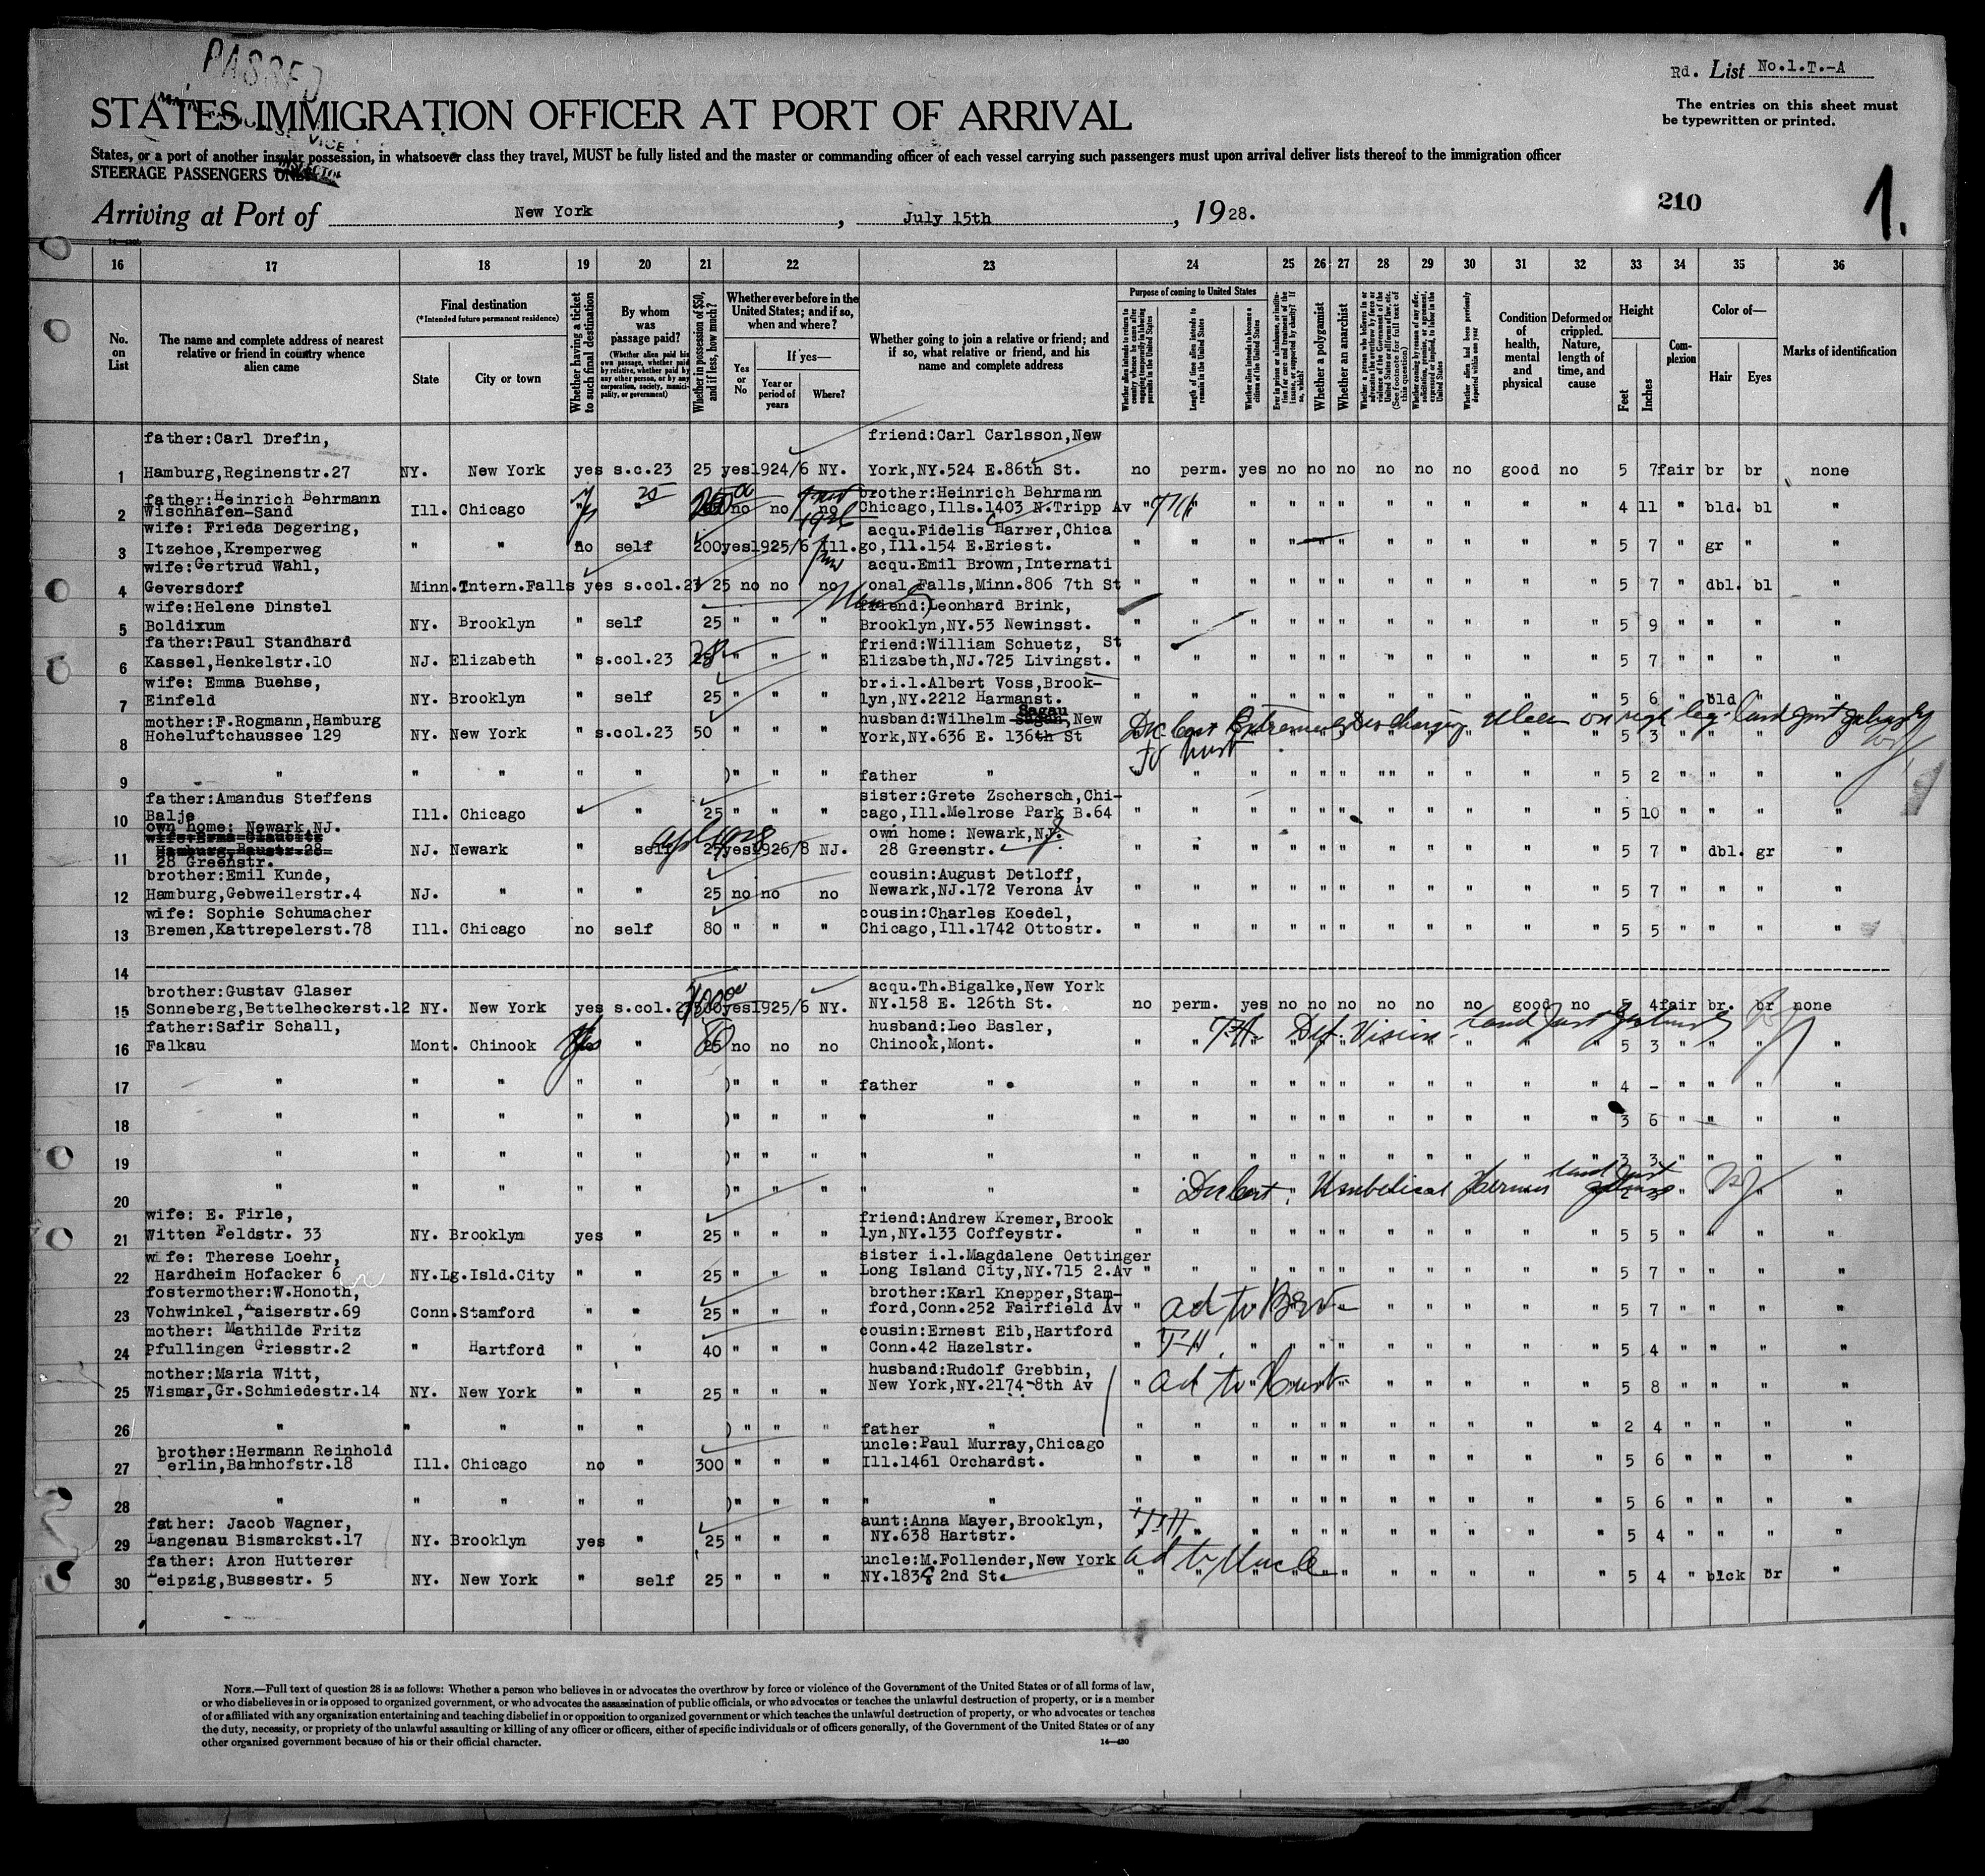 PASSED
Rd. List No.1.T.-A
STATES IMMIGRATION OFFICER AT PORT OF ARRIVAL
The entries on this sheet must
be typewritten or printed.
States, or a port of another insular possession, in whatsoever class they travel, MUST be fully listed and the master or commanding officer of each vessel carrying such passengers must upon arrival deliver lists thereof to the immigration officer
STEERAGE PASSENGERS ONLY
Arriving at Port of New York, July 15th, 1928.
210
1.
16 17 18 19 20 21 22 23 24 25 26 27 28 29 30 31 32 33 34 35 36
No. on List
The name and complete address of nearest relative or friend in country whence alien came
Final destination
(*Intended future permanent residence)
State
City or town
Whether having a ticket to such final destination
By whom was passage paid?
(Whether alien paid his own passage, whether paid by relative, whether paid by any other person, or by any corporation, society, municipality, or government)
Whether in possession of $50, and if less, how much?
Whether ever before in the United States; and if so, when and where?
Yes or No
If yes—
Year or period of years
Where?
Whether going to join a relative or friend; and if so, what relative or friend, and his name and complete address
Purpose of coming to United States
Length of time alien intends to remain in the United States
Whether alien intends to become a citizen of the United States
Whether a polygamist
Whether an anarchist
Condition of health, mental and physical
Deformed or crippled. Nature, length of time, and cause
Height
Feet
Inches
Complexion
Color of—
Hair
Eyes
Marks of identification
father:Carl Drefin, friend:Carl Carlsson,New
1 Hamburg,Reginenstr.27 NY. New York yes s.c.23 25 yes 1924/6 NY. York,NY.524 E.86th St. no perm. yes no no no no no no good no 5 7 fair br br none
father:Heinrich Behrmann brother:Heinrich Behrmann
2 Wischhafen-Sand Ill. Chicago " no no no Chicago,Ills.1403 N.Tripp Av " " " " " " " " " " " 4 11 " bld. bl "
wife: Frieda Degering, acqu.Fidelis Harrer,Chica
3 Itzehoe,Kremperweg " " no self 200 yes 1925/6 Ill. go,Ill.154 E.Eriest. " " " " " " " " " " " 5 7 " gr " "
wife:Gertrud Wahl, acqu.Emil Brown,Internati
4 Geversdorf Minn. Intern.Falls yes s.col.23 25 no no no onal Falls,Minn.806 7th St " " " " " " " " " " " 5 7 " dbl. bl "
wife:Helene Dinstel friend:Leonhard Brink,
5 Boldixum NY. Brooklyn " self 25 " " " Brooklyn,NY.53 Newinsst. " " " " " " " " " " " 5 9 " " " "
father:Paul Standhard friend:William Schuetz, St
6 Kassel,Henkelstr.10 NJ. Elizabeth " s.col.23 25 " " " Elizabeth,NJ.725 Livingst. " " " " " " " " " " " 5 7 " " " "
wife: Emma Buehse, br.i.l.Albert Voss,Brook-
7 Einfeld NY. Brooklyn " self 25 " " " lyn,NY.2212 Harmanst. " " " " " " " " " " " 5 6 " bld " "
mother:F.Rogmann,Hamburg husband:Wilhelm Sagau,New
8 Hoheluftchaussee 129 NY. New York " s.col.23 50 " " " York,NY.636 E. 136th St 5 3 " " " "
ulcer on right leg
to husb
9 " " " " " )" " " father " " " " " " " " " " " 5 2 " " " "
father:Amandus Steffens sister:Grete Zschersch,Chi-
10 Balje Ill. Chicago " 25 " " " cago,Ill.Melrose Park B.64 " " " " " " " " " " " 5 10 " " " "
own home: Newark,NJ. own home: Newark,NJ.
wife:Erna Glaubitz
Hamburg,Baustr.28
11 28 Greenstr. NJ. Newark " self 25 yes 1926/8 NJ. 28 Greenstr. " " " " " " " " " " " 5 7 " dbl. gr "
brother:Emil Kunde, cousin:August Detloff,
12 Hamburg,Gebweilerstr.4 NJ. " " " 25 no no no Newark,NJ.172 Verona Av " " " " " " " " " " " 5 7 " " " "
wife: Sophie Schumacher cousin:Charles Koedel,
13 Bremen,Kattrepelerst.78 Ill. Chicago no self 80 " " " Chicago,Ill.1742 Ottostr. " " " " " " " " " " " 5 5 " " " "
14
brother:Gustav Glaser acqu.Th.Bigalke,New York
15 Sonneberg,Bettelheckerst.12 NY. New York yes s.col.23 yes 1925/6 NY. NY.158 E. 126th St. no perm. yes no no no no no no good no 5 4 fair br. br none
father:Safir Schall, husband:Leo Basler,
16 Falkau Mont. Chinook " 25 no no no Chinook,Mont. " " T-H. Def. Vision 5 3 " " " "
17 " " " " " )" " " father " " " " " " " " " " " " 4 - " " " "
18 " " " " " )" " " " " " " " " " " " " " " " 3 6 " " " "
19 " " " " " )" " " " " " " " " " " " " " " " 3 3 " " " "
20 " " " " " )" " " " " " Umbilical Hernia
wife: E. Firle, friend:Andrew Kremer,Brook
21 Witten Feldstr. 33 NY. Brooklyn yes " 25 " " " lyn,NY.133 Coffeystr. " " " " " " " " " " " 5 5 " " " "
wife: Therese Loehr, sister i.l.Magdalene Oettinger
22 Hardheim Hofacker 6 NY. Lg.Isld.City " " 25 " " " Long Island City,NY.715 2.Av " " " " " " " " " " " 5 7 " " " "
fostermother:W.Honoth, brother:Karl Knepper,Stam-
23 Vohwinkel,Kaiserstr.69 Conn. Stamford " " 25 " " " ford,Conn.252 Fairfield Av " ad to Bro " " " " " " 5 7 " " " "
mother: Mathilde Fritz cousin:Ernest Eib,Hartford
24 Pfullingen Griesstr.2 " Hartford " " 40 " " " Conn.42 Hazelstr. " T-H. " " " " " " " " " 5 4 " " " "
mother:Maria Witt, husband:Rudolf Grebbin,
25 Wismar,Gr.Schmiedestr.14 NY. New York " " 25 " " " New York,NY.2174-8th Av " ad to Husb " " " " " " 5 8 " " " "
26 " " " " " )" " " father " " " " " " " " " " " " 2 4 " " " "
brother:Hermann Reinhold uncle:Paul Murray,Chicago
27 erlin,Bahnhofstr.18 Ill. Chicago no " 300 " " " Ill.1461 Orchardst. " " " " " " " " " " " 5 6 " " " "
28 " " " " " )" " " " " " " " " " " " " " " " 5 6 " " " "
father: Jacob Wagner, aunt:Anna Mayer,Brooklyn,
29 Langenau Bismarckst.17 NY. Brooklyn yes " 25 " " " NY.638 Hartstr. T-H " " " " " " " " " 5 4 " " " "
father: Aron Hutterer uncle:M.Follender,New York
30 Leipzig,Bussestr. 5 NY. New York " self 25 " " " 2nd St. ad to Uncle " " " " " " 5 4 " blck br "
NOTE.—Full text of question 28 is as follows: Whether a person who believes in or advocates the overthrow by force or violence of the Government of the United States or of all forms of law,
or who disbelieves in or is opposed to organized government, or who advocates the assassination of public officials, or who advocates or teaches the unlawful destruction of property, or is a member
of or affiliated with any organization entertaining and teaching disbelief in or opposition to organized government or which teaches the unlawful destruction of property, or who advocates or teaches
the duty, necessity, or propriety of the unlawful assaulting or killing of any officer or officers, either of specific individuals or of officers generally, of the Government of the United States or of any
other organized government because of his or their official character.
14—430